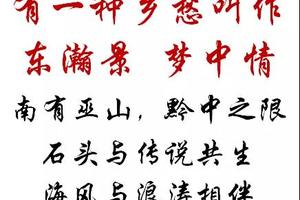 有一种乡愁叫作
东瀚景 梦中情
南有巫山，黔中之限
石头与传说共生
海风与浪涛相伴